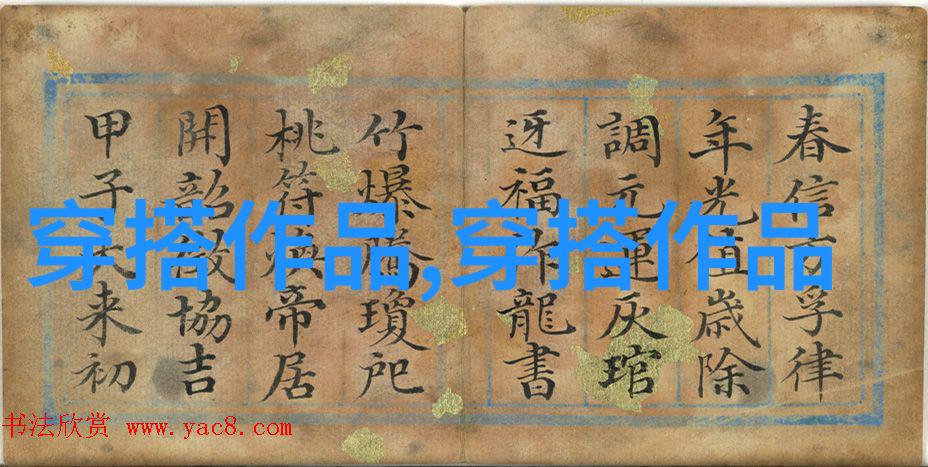 春信孚律
年光值歲除
調元運灰琯
迓福龍書
竹爆騰瓊
桃符煥帝居
開韶協吉
甲子来初
穿搭作品,穿搭作品
书法欣赏 www.yac8.com